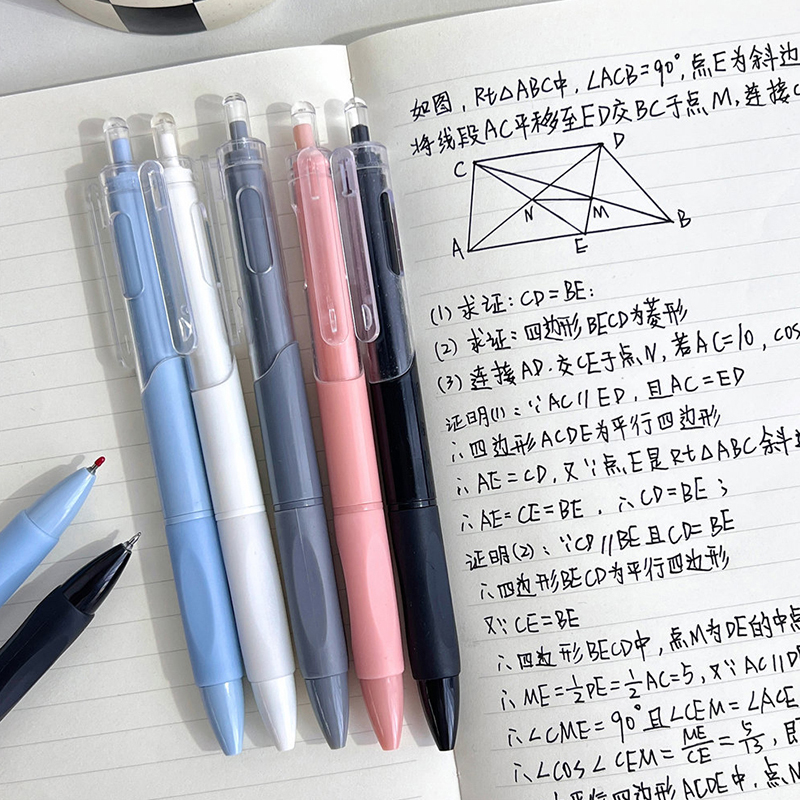 如图，Rt△ABC中，∠ACB=90°，点E为斜边
将线段AC平移至ED交BC于点M，连接C
C
D
N
M
B
A
E
(1) 求证：CD=BE；
(2) 求证：四边形BECD为菱形
(3) 连接AD.交CE于点N，若AC=10，cos
证明(1)：∵AC∥ED，且AC=ED
∴四边形ACDE为平行四边形
∴AE=CD，又∵点E是Rt△ABC斜
∴AE=CE=BE，∴CD=BE；
证明(2)：∵CD∥BE且CD=BE
∴四边形BECD为平行四边形
又∵CE=BE
∴四边形BECD中，点M为DE的中点
∴ME=½DE=½AC=5，又∵AC∥D
∴∠CME=90°且∠CEM=∠ACE
∴∠COS∠CEM=ME/CE=5/13，即
平行四边形ACDE中，点N